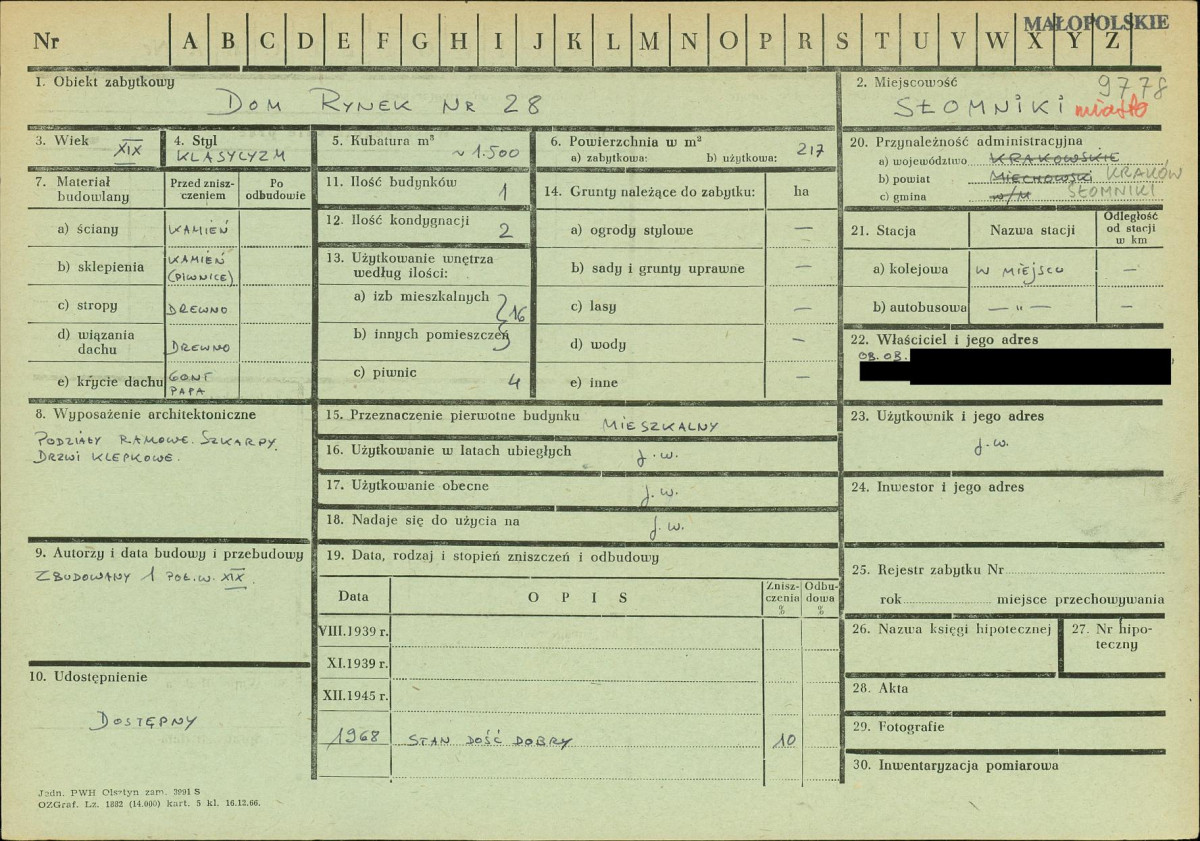 MAŁOPOLSKIE
Nr A B C D E F G H I J K L M N O P R S T U V W X Y Z
1. Obiekt zabytkowy
DOM RYNEK NR 28
2. Miejscowość 9778
SŁOMNIKI miasto
3. Wiek XIX
4. Styl
KLASYCYZM
5. Kubatura m³
~ 1.500
6. Powierzchnia w m²
a) zabytkowa: b) użytkowa: 217
20. Przynależność administracyjna
a) województwo KRAKOWSKIE
b) powiat MIECHOWSKI KRAKÓW
c) gmina w/m SŁOMNIKI
7. Materiał budowlany
Przed zniszczeniem
Po odbudowie
a) ściany KAMIEŃ
b) sklepienia KAMIEŃ (PIWNICE)
c) stropy DREWNO
d) wiązania dachu DREWNO
e) krycie dachu GONT PAPA
11. Ilość budynków 1
12. Ilość kondygnacji 2
13. Użytkowanie wnętrza według ilości:
a) izb mieszkalnych
16
b) innych pomieszczeń
c) piwnic 4
14. Grunty należące do zabytku: ha
a) ogrody stylowe —
b) sady i grunty uprawne —
c) lasy —
d) wody —
e) inne —
21. Stacja
Nazwa stacji
Odległość od stacji w km
a) kolejowa W MIEJSCU —
b) autobusowa — „ — —
22. Właściciel i jego adres
OB. OB.
8. Wyposażenie architektoniczne
PODZIAŁY RAMOWE. SZKARPY.
DRZWI KLEPKOWE.
15. Przeznaczenie pierwotne budynku
MIESZKALNY
16. Użytkowanie w latach ubiegłych
j.w.
17. Użytkowanie obecne
j.w.
18. Nadaje się do użycia na
j.w.
23. Użytkownik i jego adres
j.w.
24. Inwestor i jego adres
9. Autorzy i data budowy i przebudowy
ZBUDOWANY 1 POŁ. W. XIX.
19. Data, rodzaj i stopień zniszczeń i odbudowy
Data
OPIS
Zniszczenia %
Odbudowa %
VIII.1939 r.
XI.1939 r.
XII.1945 r.
1968 STAN DOŚĆ DOBRY 10
25. Rejestr zabytku Nr
rok miejsce przechowywania
26. Nazwa księgi hipotecznej
27. Nr hipoteczny
10. Udostępnienie
DOSTĘPNY
28. Akta
29. Fotografie
30. Inwentaryzacja pomiarowa
Jedn. PWH Olsztyn zam. 3991 S
OZGraf. Lz. 1882 (14.000) kart. 5 kl. 16.12.66.